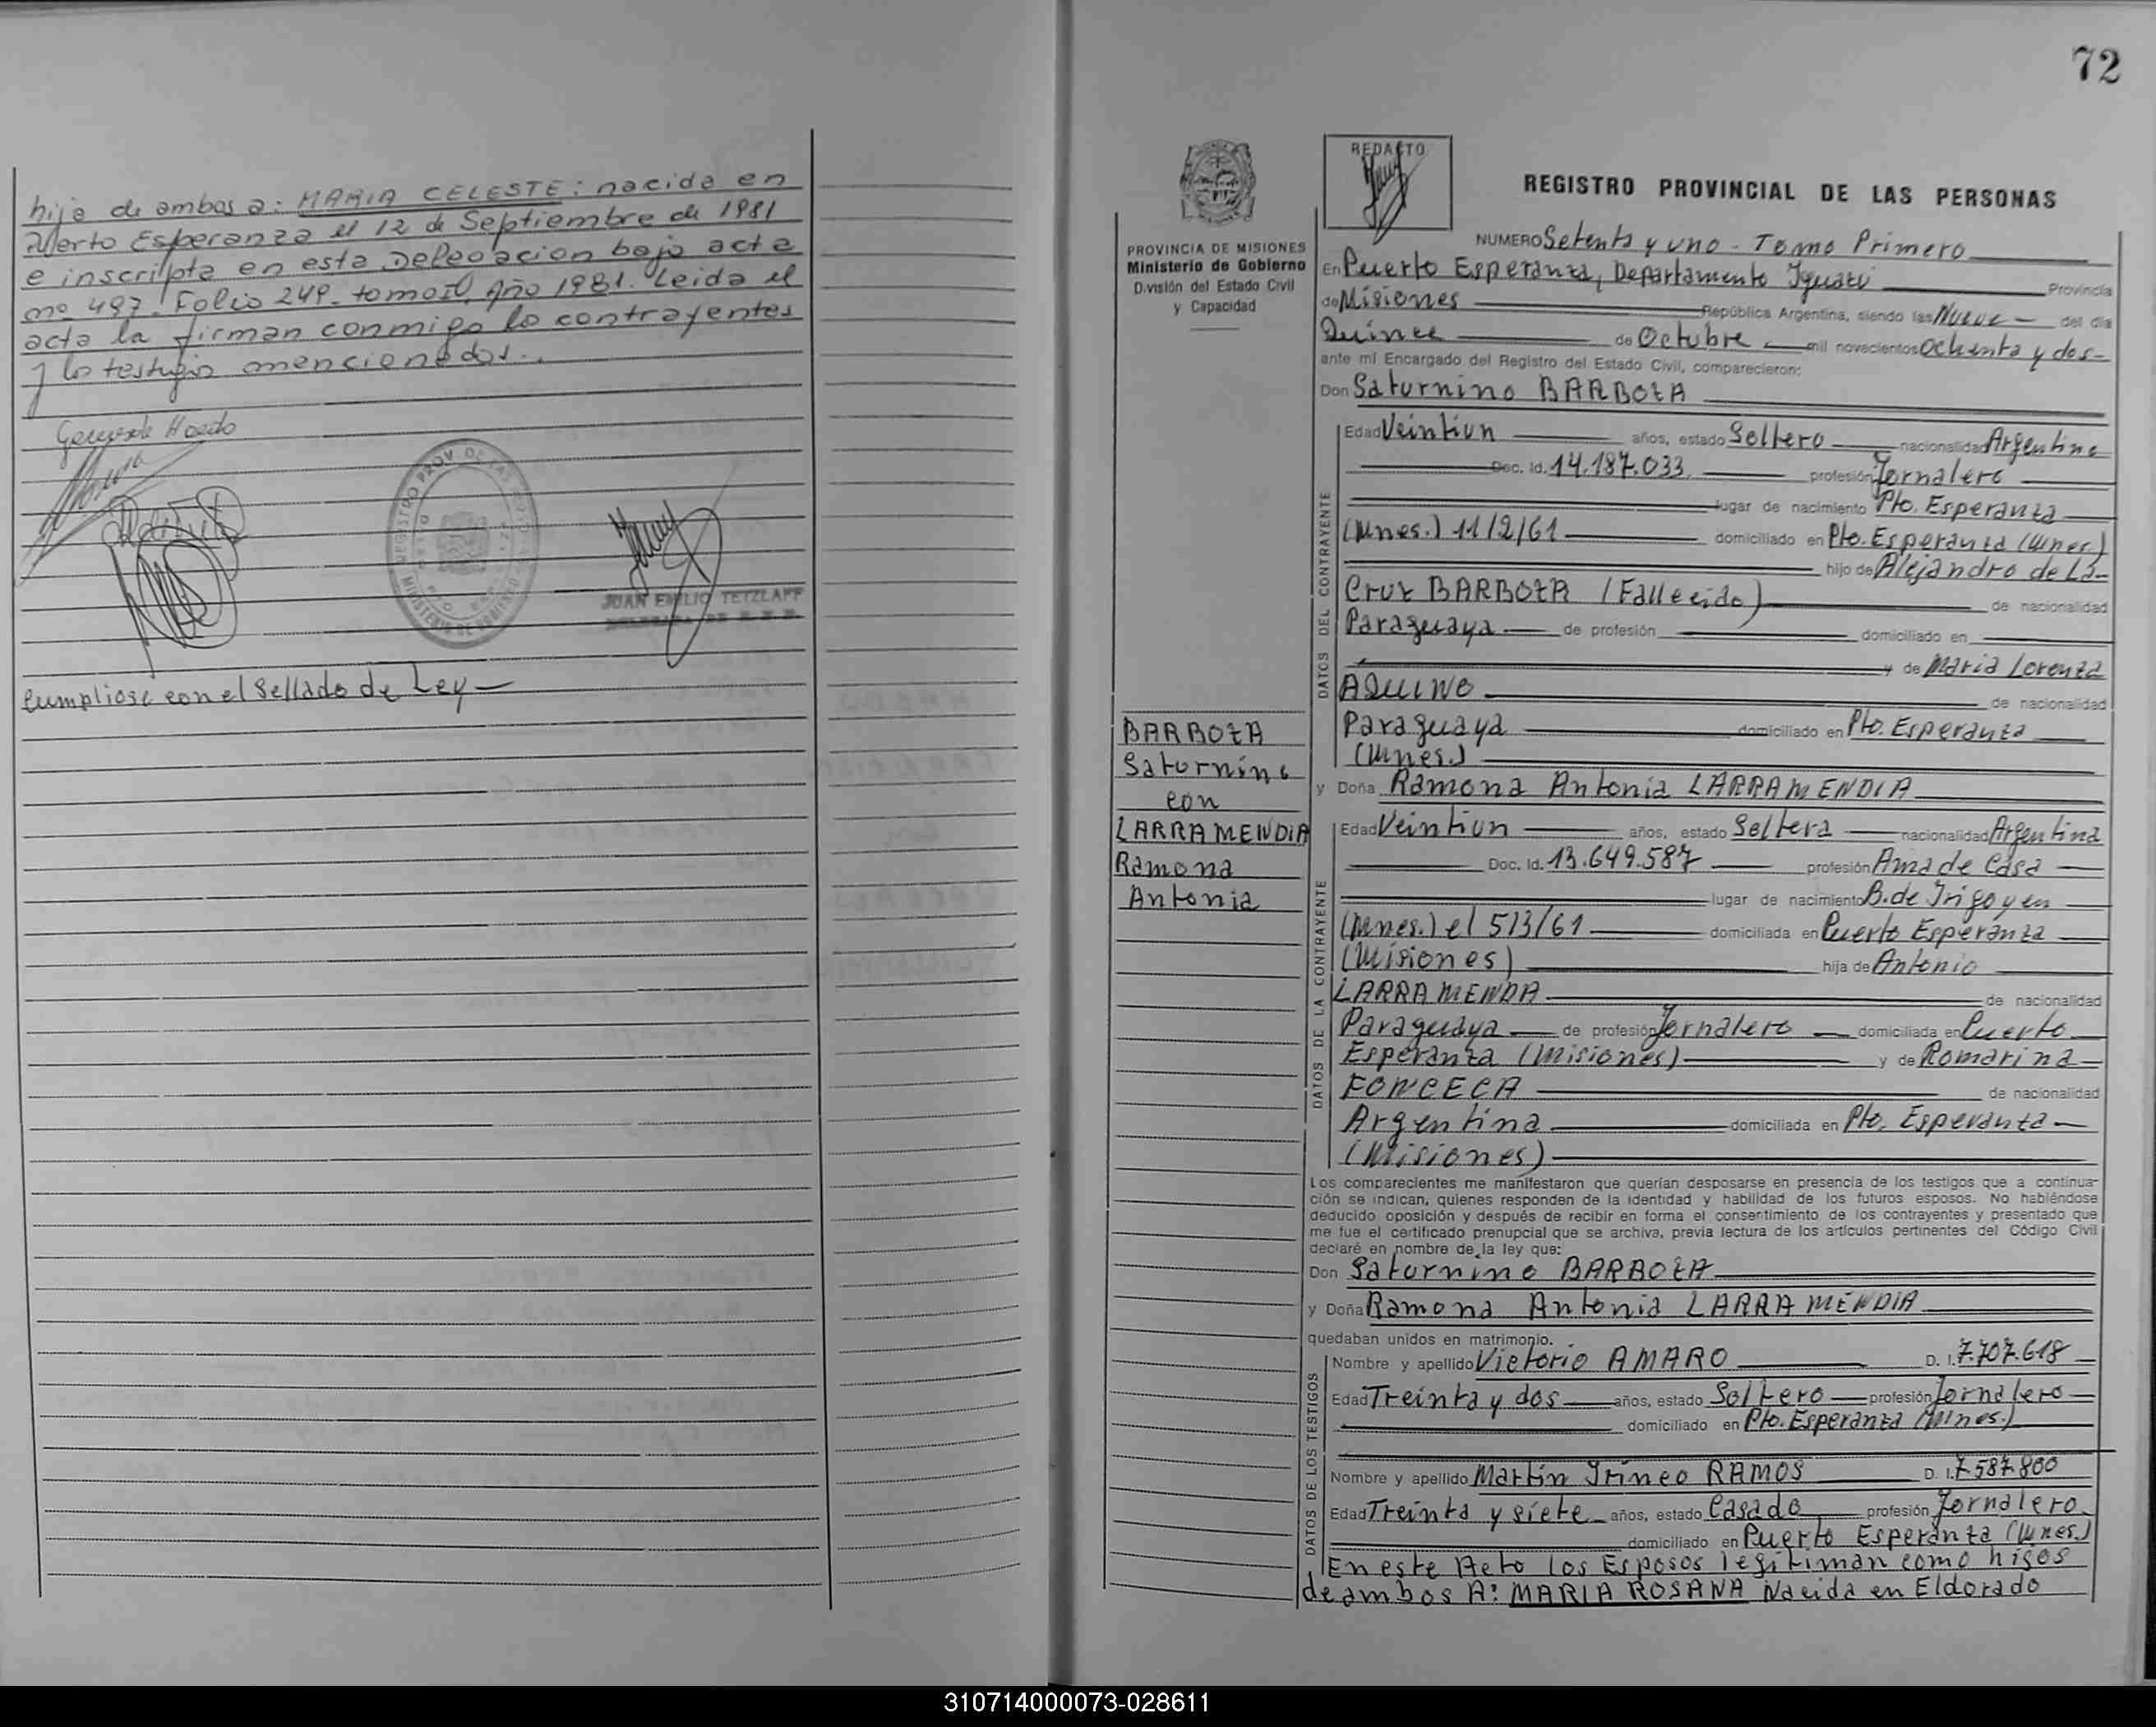 hija de ambos a: MARIA CELESTE: nacida en
Puerto Esperanza el 12 de Septiembre de 1981
e inscripta en esta Delegacion bajo acta
nº 497. Folio 249. tomo II. Año 1981. Leida el
acta la firman conmigo lo contrayentes
y lo testigos mencionados..
JUAN EMILIO TETZLAFF
Cumpliose con el Sellado de Ley —
72
REDACTO
REGISTRO PROVINCIAL DE LAS PERSONAS
PROVINCIA DE MISIONES
Ministerio de Gobierno
División del Estado Civil
y Capacidad
NUMERO Setenta y uno - Tomo Primero
En Puerto Esperanza, Departamento Iguazú Provincia
de Misiones República Argentina, siendo las Nueve — del día
Quince de Octubre mil novecientos Ochenta y dos-
ante mí Encargado del Registro del Estado Civil, comparecieron:
Don Saturnino BARBOZA
DATOS DEL CONTRAYENTE
Edad Veintiun años, estado Soltero nacionalidad Argentina
Doc. Id. 14.187.033. profesión Jornalero
lugar de nacimiento Pto. Esperanza
(Mnes.) 11/2/61 domiciliado en Pto. Esperanza (Mnes.)
hijo de Alejandro de La-
Cruz BARBOZA (Fallecido) de nacionalidad
Paraguaya de profesión domiciliado en
y de Maria Lorenza
AQUINO de nacionalidad
Paraguaya domiciliado en Pto. Esperanza
(Mnes.)
BARBOZA
Saturnino
con
LARRAMENDIA
Ramona
Antonia
y Doña Ramona Antonia LARRAMENDIA
DATOS DE LA CONTRAYENTE
Edad Veintiun años, estado Soltera nacionalidad Argentina
Doc. Id. 13.649.587 profesión Ama de Casa
lugar de nacimiento B. de Irigoyen
(Mnes.) el 5/3/61 domiciliada en Puerto Esperanza
(Misiones) hija de Antonio
LARRAMENDA de nacionalidad
Paraguaya de profesión Jornalero domiciliada en Puerto
Esperanza (Misiones) y de Romarina
FONCECA de nacionalidad
Argentina domiciliada en Pto. Esperanza
(Misiones)
Los comparecientes me manifestaron que querían desposarse en presencia de los testigos que a continua-
ción se indican, quienes responden de la identidad y habilidad de los futuros esposos. No habiéndose
deducido oposición y después de recibir en forma el consertimiento de los contrayentes y presentado que
me fue el certificado prenupcial que se archiva, previa lectura de los artículos pertinentes del Código Civil
declaré en nombre de la ley que:
Don Saturnino BARBOZA
y Doña Ramona Antonia LARRAMENDIA
quedaban unidos en matrimonio.
DATOS DE LOS TESTIGOS
Nombre y apellido Victorio AMARO D. I. 7.707.618
Edad Treinta y dos años, estado Soltero profesión Jornalero
domiciliado en Pto. Esperanza (Mnes.)
Nombre y apellido Martin Irineo RAMOS D. I. 7.587.800
Edad Treinta y siete años, estado Casado profesión Jornalero
domiciliado en Puerto Esperanza (Mnes.)
En este Acto los Esposos legitiman como hijos
de ambos A: MARIA ROSANA Nacida en Eldorado
310714000073-028611